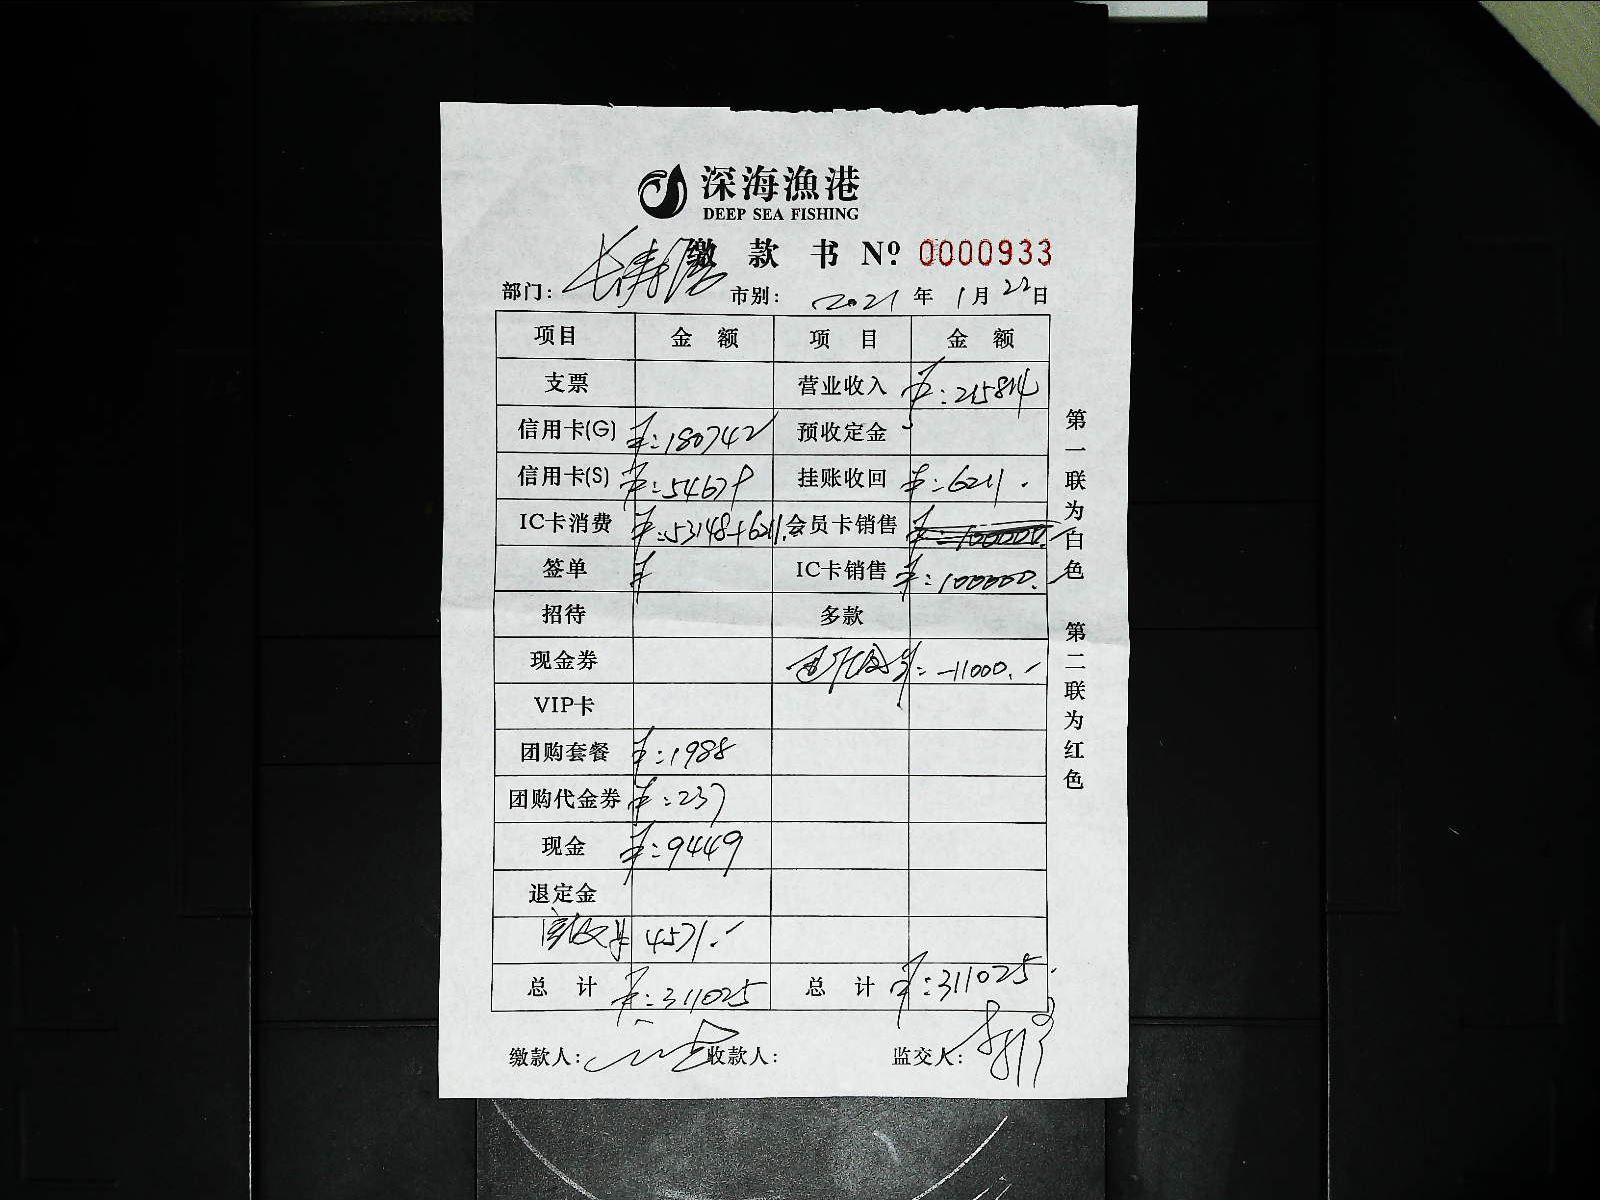 深海漁港
DEEP SEA FISHING
缴款书 Nº 0000933
部门: 长寿路 市别: 2021年1月22日
项目 金额 项目 金额
支票 营业收入 ¥:215814
信用卡(G) ¥:180742 预收定金
信用卡(S) ¥:54679 挂账收回 ¥:6211.
IC卡消费 ¥:53148+6211. 会员卡销售 ¥:100000.-
签单 ¥ IC卡销售 ¥:100000.-
招待 多款
现金券 ¥:-11000.-
VIP卡
团购套餐 ¥:1988
团购代金券 ¥:237
现金 ¥:9449
退定金
4571.-
总计 ¥:311025 总计 ¥:311025.
缴款人: 收款人: 监交人:
第一联为白色 第二联为红色